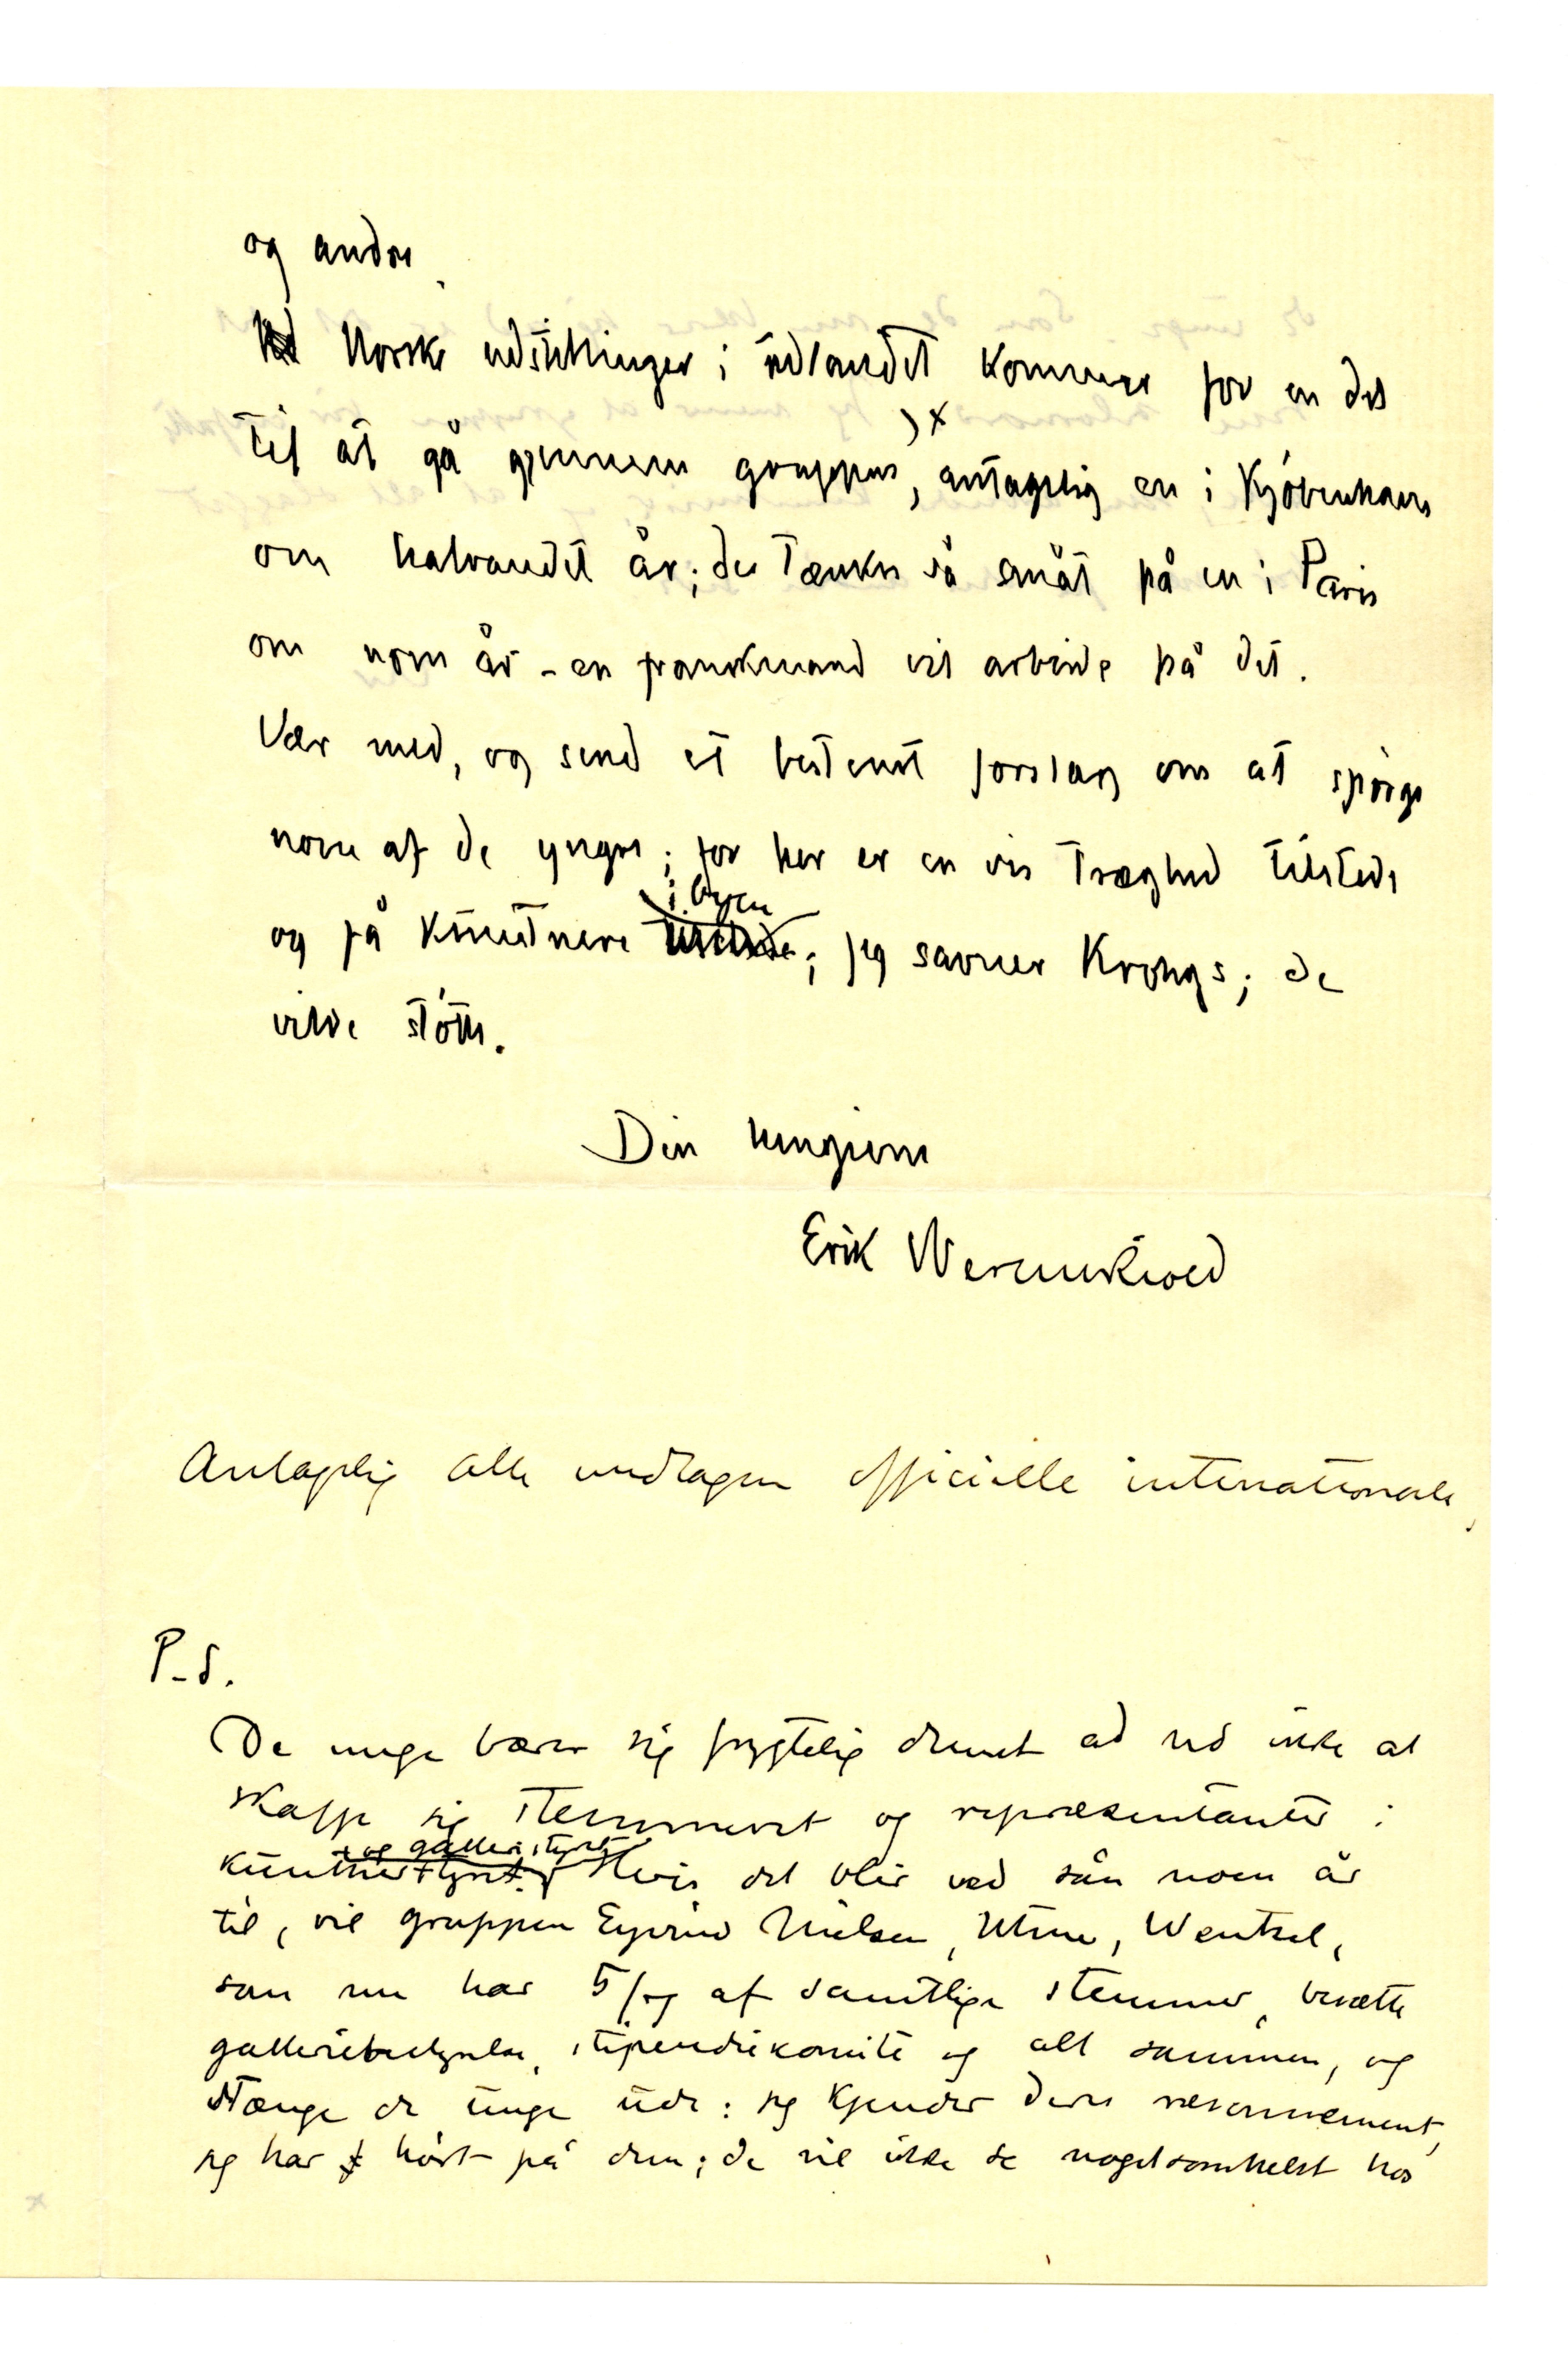 og andre.
Norske udstillinger i udlandet kommer for en del
til at gå gjennem gruppen x), antagelig en i Kjøbenhavn
om halvandet år; der tænkes så småt på en i Paris
om noen år - en franskmand vil arbeide på det.
Vær med, og send et bestemt forslag om at spørge
noen af de yngre; for her er en vis træghed tilstede
og få kunstnere i byen; jeg savner Krohgs; de
vilde støtte.
Din hengivne
Erik Werenskiold
Antagelig alle undtagen officielle internationale.
P.S.
De unge bærer sig frygtelig dumt ad ved ikke at
skaffe sig stemmeret og repræsentanter i
kunstnerstyret og galleristyret. Hvis det blir ved sån noen år
til, vil gruppen Eyvind Nielsen, Utne, Wentzel,
som nu har 5/ af samtlige stemmer, besætte
galleribestyrelse, stipendiekomité og alt sammen, og
stænge de unge ude: jeg kjender deres ræsonnement,
jeg har hørt på dem; de vil ikke se nogetsomhelst hos